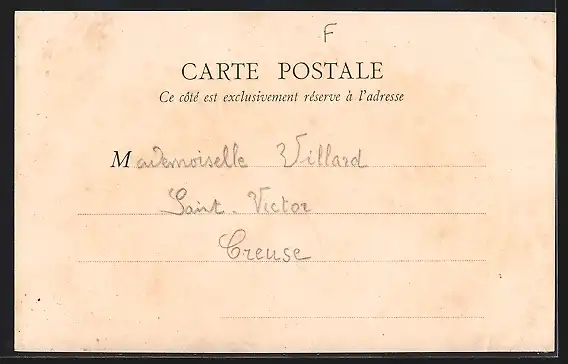 F
CARTE POSTALE
Ce côté est exclusivement réserve à l'adresse
Mademoiselle Villard
Saint-Victor
Creuse